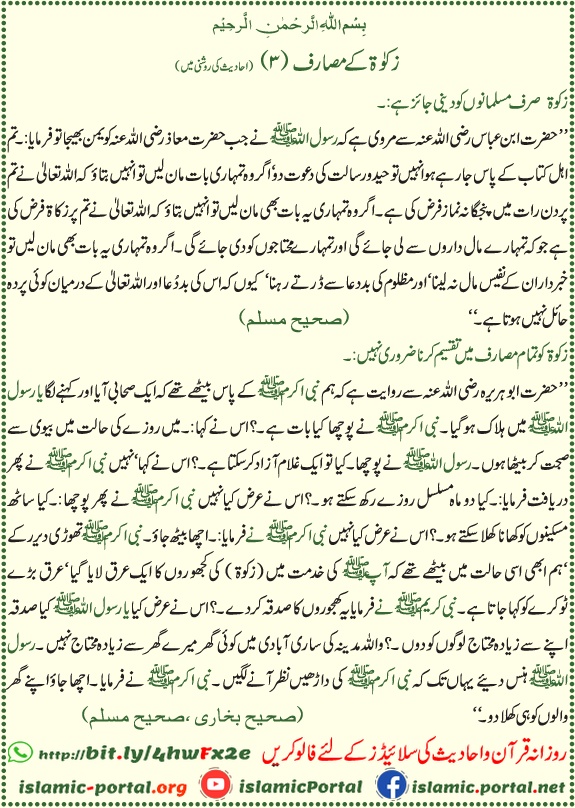 بِسْمِ اللّٰهِ الرَّحْمٰنِ الرَّحِيْمِ
زکوٰۃ کے مصارف (۳) (احادیث کی روشنی میں)
زکوٰۃ صرف مسلمانوں کو دینی جائز ہے:۔
’’حضرت ابن عباس رضی اللہ عنہ سے مروی ہے کہ رسول اللہ ﷺ نے جب حضرت معاذ رضی اللہ عنہ کو یمن بھیجا تو فرمایا:۔ تم
اہل کتاب کے پاس جا رہے ہو انہیں توحید و رسالت کی دعوت دو‘ اگر وہ تمہاری بات مان لیں تو انہیں بتاؤ کہ اللہ تعالیٰ نے تم
پر دن رات میں پنجگانہ نماز فرض کی ہے۔ اگر وہ تمہاری یہ بات بھی مان لیں تو انہیں بتاؤ کہ اللہ تعالیٰ نے تم پر زکاۃ فرض کی
ہے جو کہ تمہارے مال داروں سے لی جائے گی اور تمہارے محتاجوں کو دی جائے گی۔ اگر وہ تمہاری یہ بات بھی مان لیں تو
خبردار ان کے نفیس مال نہ لینا‘ اور مظلوم کی بددعا سے ڈرتے رہنا‘ کیوں کہ اس کی بددُعا اور اللہ تعالیٰ کے درمیان کوئی پردہ
حائل نہیں ہوتا ہے۔‘‘ (صحیح مسلم)
زکوٰۃ کو تمام مصارف میں تقسیم کرنا ضروری نہیں:۔
’’حضرت ابو ہریرہ رضی اللہ عنہ سے روایت ہے کہ ہم نبی اکرم ﷺ کے پاس بیٹھے تھے کہ ایک صحابی آیا اور کہنے لگا یا رسول
اللہ ﷺ میں ہلاک ہو گیا۔ نبی اکرم ﷺ نے پوچھا کیا بات ہے۔؟ اس نے کہا:۔ میں روزے کی حالت میں بیوی سے
صحبت کر بیٹھا ہوں۔ رسول اللہ ﷺ نے پوچھا۔ کیا تو ایک غلام آزاد کر سکتا ہے۔؟ اس نے کہا‘ نہیں نبی اکرم ﷺ نے پھر
دریافت فرمایا:۔ کیا دو ماہ مسلسل روزے رکھ سکتے ہو۔؟ اس نے عرض کیا نہیں نبی اکرم ﷺ نے پھر پوچھا:۔ کیا ساٹھ
مسکینوں کو کھانا کھلا سکتے ہو۔؟ اس نے عرض کیا نہیں نبی اکرم ﷺ نے فرمایا:۔ اچھا بیٹھ جاؤ۔ نبی اکرم ﷺ تھوڑی دیر رکے
‘ہم ابھی اسی حالت میں بیٹھے تھے کہ آپ ﷺ کی خدمت میں (زکوۃ) کی کجھوروں کا ایک عرق لایا گیا‘ عرق بڑے
ٹوکرے کو کہا جاتا ہے۔ نبی کریم ﷺ نے فرمایا یہ کھجوروں کا صدقہ کر دے۔؟ اس نے عرض کیا یا رسول اللہ ﷺ کیا صدقہ
اپنے سے زیادہ محتاج لوگوں کو دوں۔؟ واللہ مدینہ کی ساری آبادی میں کوئی گھر میرے گھر سے زیادہ محتاج نہیں۔ رسول
اللہ ﷺ ہنس دیئے یہاں تک کہ نبی اکرم ﷺ کی داڑھیں نظر آنے لگیں۔ نبی اکرم ﷺ نے فرمایا۔ اچھا جاؤ اپنے گھر
والوں کو ہی کھلا دو۔‘‘ (صحیح بخاری ،صحیح مسلم)
روزانہ قرآن و احادیث کی سلائیڈز کے لئے فالو کریں http://bit.ly/4hwFx2e
islamic-portal.org islamicPortal islamic.portal.net